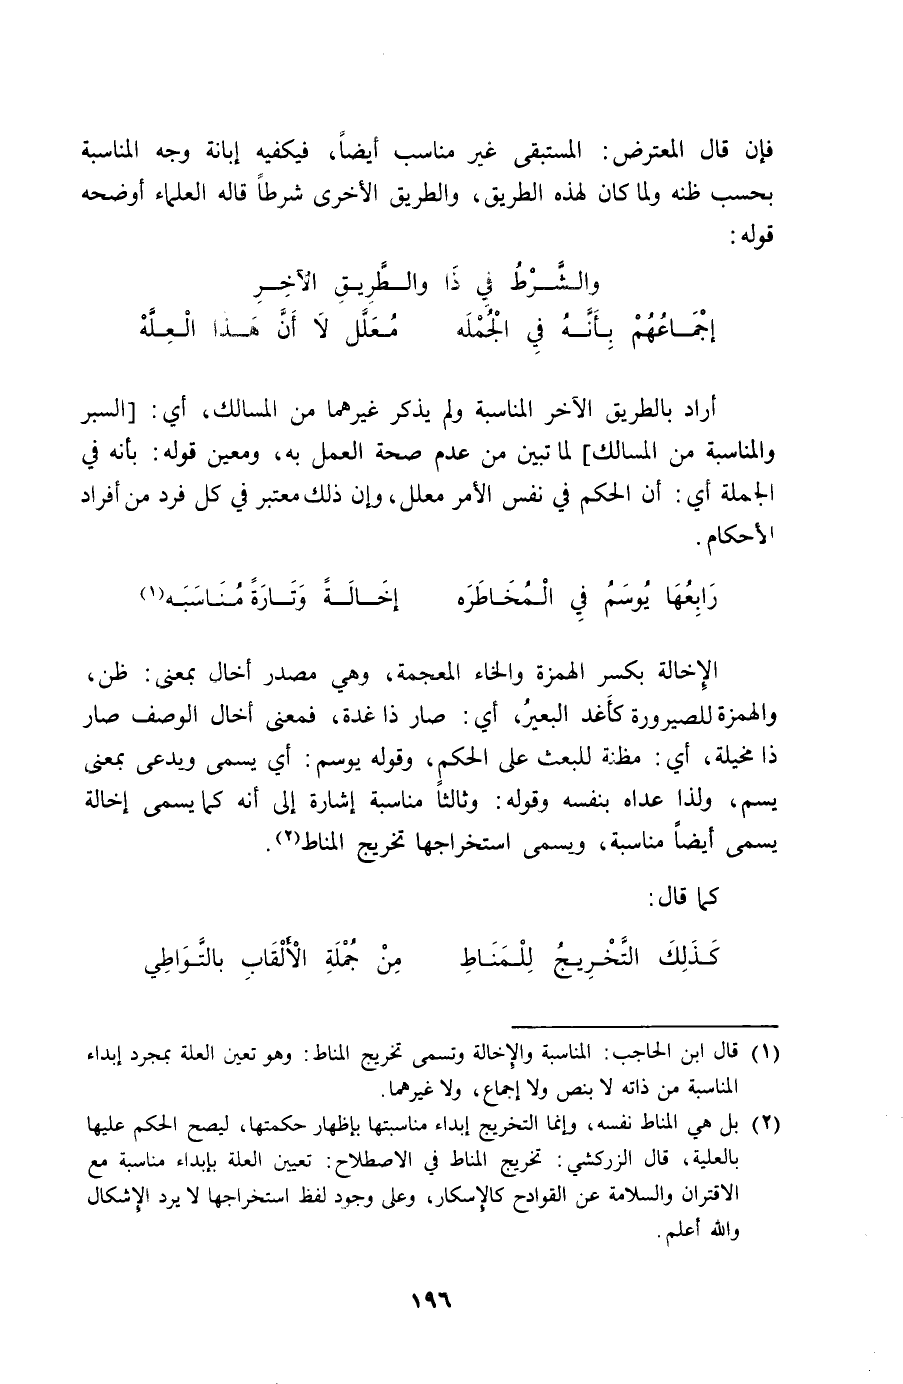 فإن قال المعترض: المستبقى غير مناسب أيضاً، فيكفيه إبانة وجه المناسبة
بحسب ظنه ولما كان لهذه الطريق، والطريق الأخرى شرطاً قاله العلماء أوضحه
قوله:
والشَّرْطُ فِي ذَا والطَّرِيقِ الآخِرِ
إِجْمَاعُهُمْ بِأَنَّهُ فِي الْجُمْلَه مُعَلَّل لَا أَنَّ هَذا الْعِلَّهْ
أراد بالطريق الآخر المناسبة ولم يذكر غيرهما من المسالك، أي: [السبر
والمناسبة من المسالك] لما تبين من عدم صحة العمل به، ومعين قوله: بأنه في
الجملة أي: أن الحكم في نفس الأمر معلل، وإن ذلك معتبر في كل فرد من أفراد
الأحكام.
رَابِعُهَا يُوسَمُ فِي الْمُخَاطَرَه إخَالَةً وَتَارَةً مُنَاسَبَه(١)
الإِخالة بكسر الهمزة والخاء المعجمة، وهي مصدر أخال بمعنى: ظن،
والهمزة للصيرورة كأَغد البعيرُ، أي: صار ذا غدة، فمعنى أخال الوصف صار
ذا مخيلة، أي: مظنة للبعث على الحكم، وقوله يوسم: أي يسمى ويدعى بمعنى
يسم، ولذا عداه بنفسه وقوله: وثالثاً مناسبة إشارة إلى أنه كما يسمى إخالة
يسمى أيضاً مناسبة، ويسمى استخراجها تخريج المناط(٢).
كما قال:
كَذَلِكَ التَّخْرِيجُ لِلْمَنَاطِ مِنْ جُمْلَةِ الْأَلْقَابِ بالتَّوَاطِي
(١) قال ابن الحاجب: المناسبة والإخالة وتسمى تخريج المناط: وهو تعين العلة بمجرد إبداء
المناسبة من ذاته لا بنص ولا إجماع، ولا غيرهما.
(٢) بل هي المناط نفسه، وإنما التخريج إبداء مناسبتها بإظهار حكمتها، ليصح الحكم عليها
بالعلية، قال الزركشي: تخريج المناط في الاصطلاح: تعيين العلة بإبداء مناسبة مع
الاقتران والسلامة عن القوادح كالإسكار، وعلى وجود لفظ استخراجها لا يرد الإشكال
والله أعلم.
١٩٦